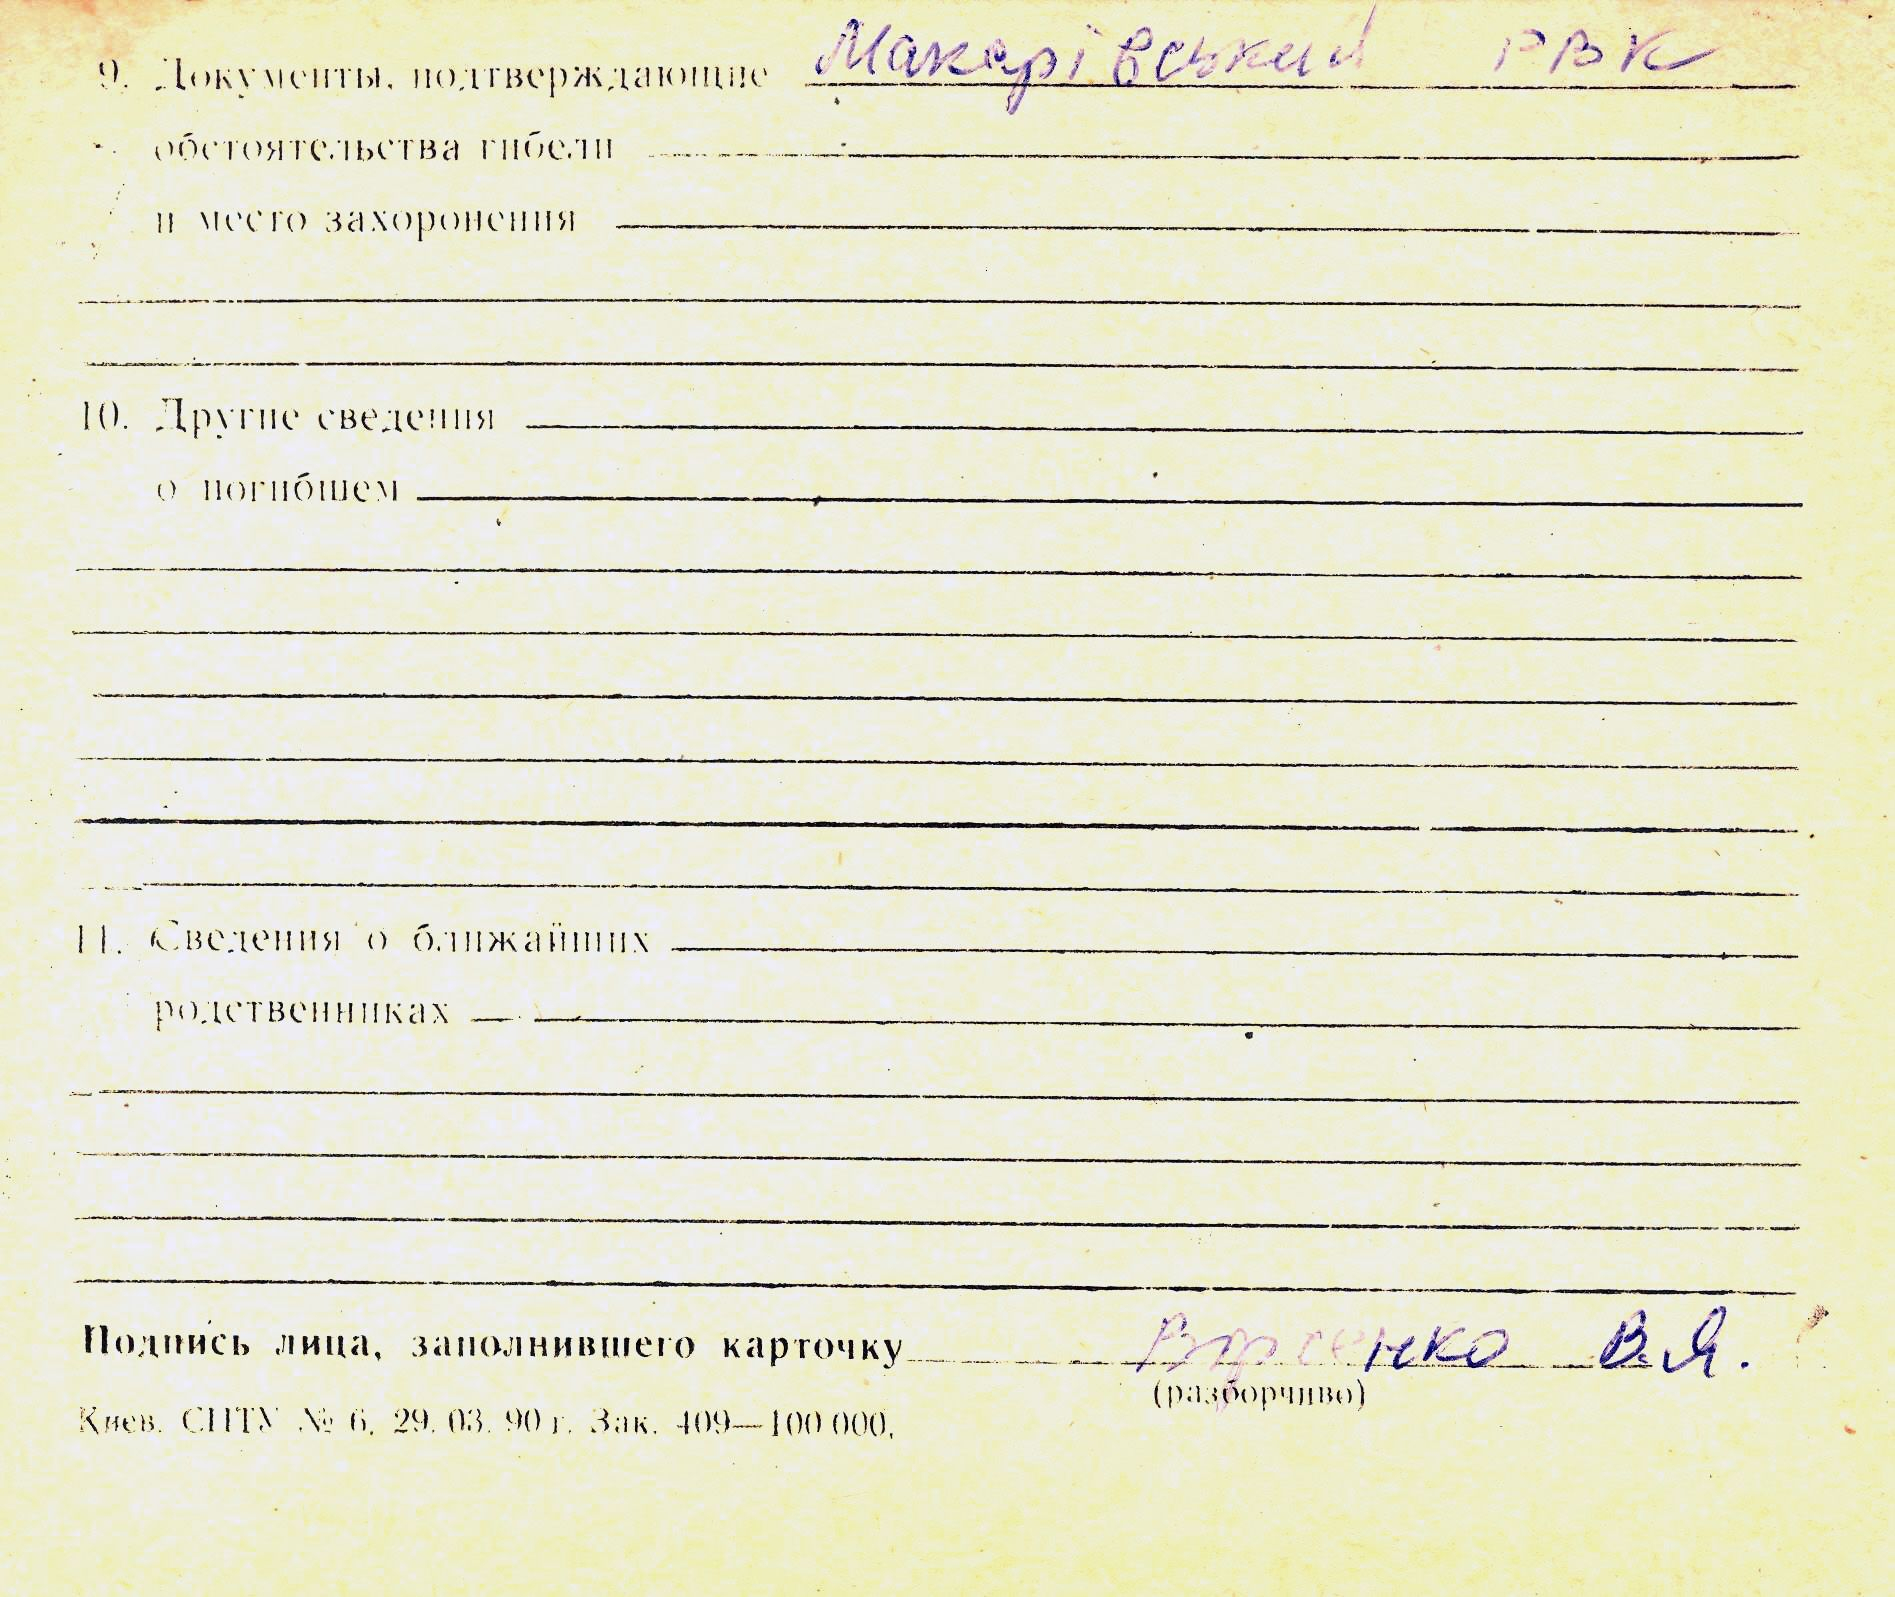 9. Документы, подтверждающие Макарівський РВК
обстоятельства гибели
и место захоронения
10. Другие сведения
о погибшем
11. Сведения о ближайших
родственниках
Подпись лица, заполнившего карточку В.Я.
(разборчиво)
Киев. СПТУ № 6. 29. 03. 90 г. Зак. 409—100 000.